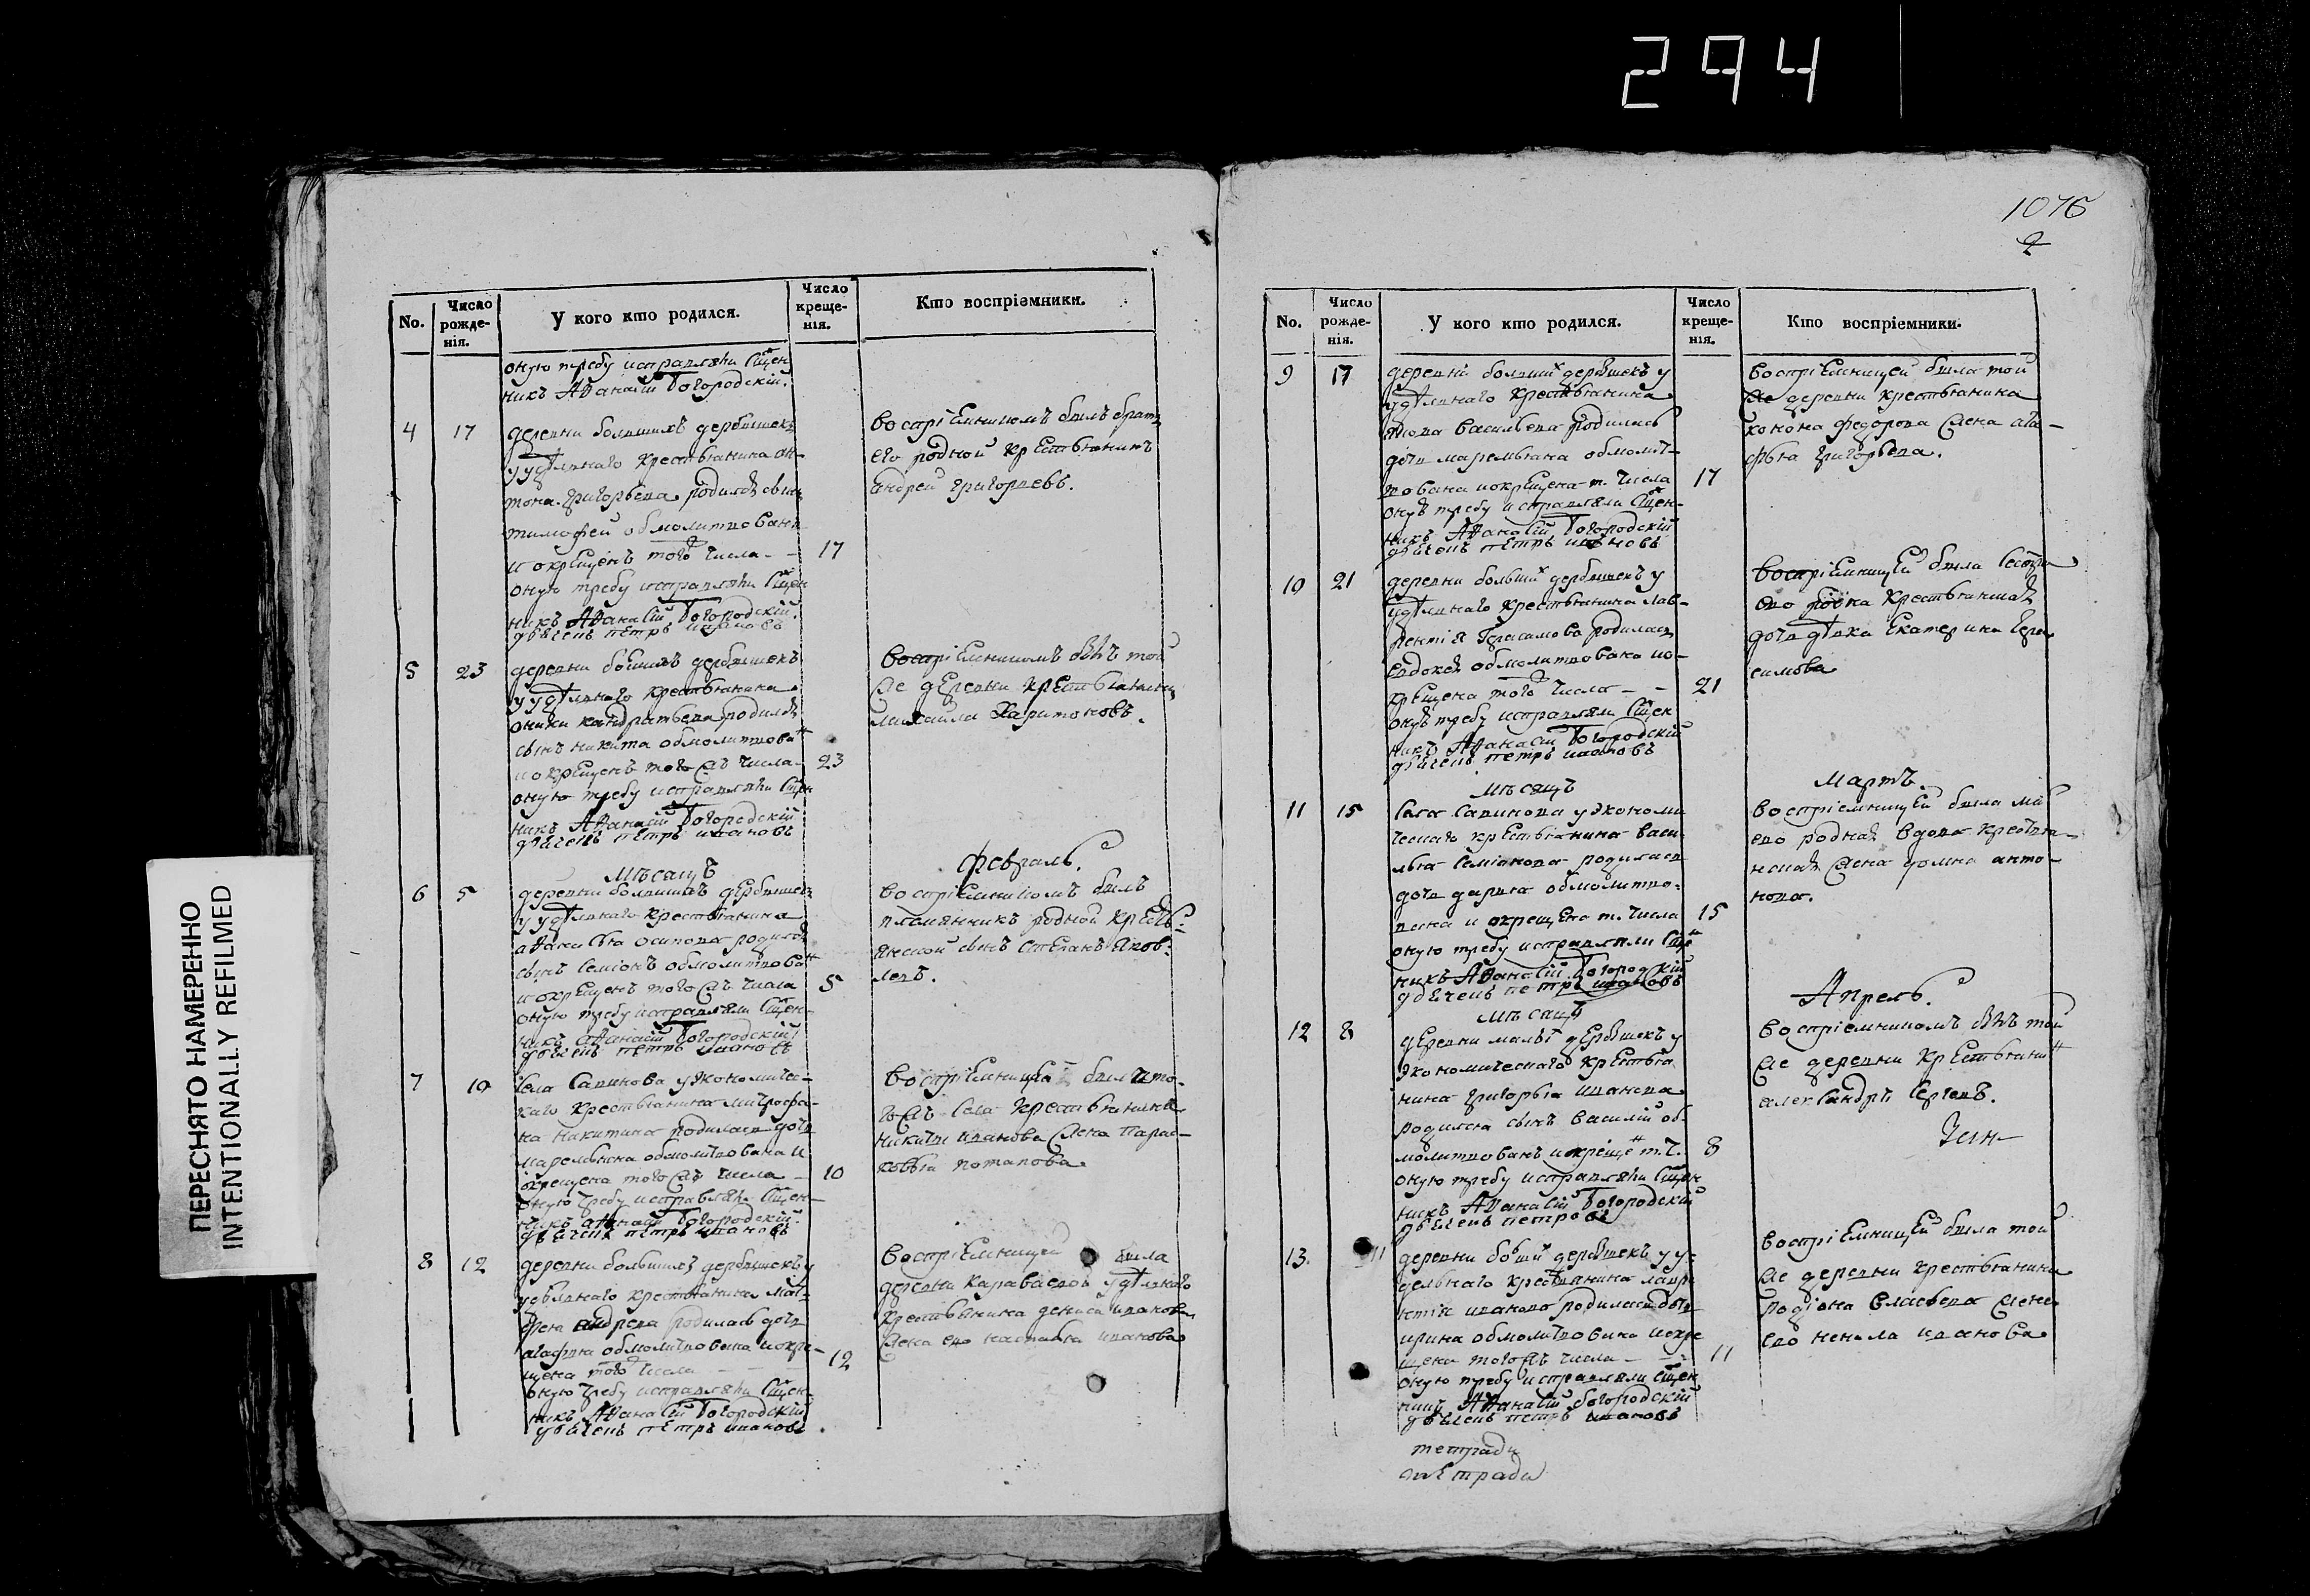 294
ПЕРЕСНЯТО НАМЕРЕННО
INTENTIONALLY REFILMED
No.
Число рожде-нія.
У кого кто родился.
Число креще-нія.
Кто воспріемники.
оную требу исправляли Сщен
никъ Аѳанасій Богородскій.
4 17 деревни большихъ дербышекъ
у удѣлнаго крестьянина ан-
тона григорьева родился сынъ
тимофей обмолитвованъ
и окрещенъ того числа - - 17
оную требу исправляли Сщен
никъ Аѳанасій Богородскій.
дьячекъ петръ ивановъ
воспріемникомъ былъ братъ
его родной крестьянинъ
андрей григорьевъ.
5 23 деревни большихъ дербышекъ
у удѣлнаго крестьянина
оники кандратьева родился
сынъ никита обмолитвован
и окрещенъ того жъ числа- 23
оную требу исправляли Сщен
никъ Аѳанасій Богородскій
дьячекъ петръ ивановъ
воспріемникомъ былъ той
же деревни крестьянинъ
михайла Харитоновъ.
мѣсяцъ февраль.
6 5 деревни большихъ дербышекъ
у удѣлнаго крестьянина
аѳанасья осипова родился
сынъ семіонъ обмолитвован
и окрещенъ того жъ числа 5
оную требу исправляли Сщен-
никъ аѳанасій Богородскій
дьячекъ петръ ивановъ
воспріемникомъ былъ
племянникъ родной кресть-
янской сынъ степанъ яков-
левъ.
7 10 села Савинова у экономиче-
каго крестьянина митрофа-
на никитина родилась дочь
маремьяна обмолитвована и
окрещена того жъ числа - 10
оную требу исправляли Сщен-
никъ аѳанасій Богородскій.
дьячекъ петръ ивановъ
воспріемницей была то-
гожъ села крестьянина
никиты иванова жена Парас-
ковья потапова
8 12 деревни большихъ дербышекъ у
удѣлнаго крестьянина мат-
фея андреева родилась дочь
агафья обмолитвована и окре-
щена того числа - - 12
оную требу исправляли Сщен-
никъ Аѳанасій Богородскій
дьячекъ петръ ивановъ
воспріемницей была
деревни караваевой удѣлнаго
крестьянина дениса иванова
жена ево настасья иванова
1076
2
No.
Число рожде-нія.
У кого кто родился.
Число креще-нія.
Кто воспріемники.
9 17 деревни больших дербышекъ у
удѣлнаго крестьянина
васильева родилась
дочь маремьяна обмолит-
вована и окрещена т. числа 17
оную требу исправляли Сщен-
никъ Аѳанасій Богородскій
дьячекъ петръ ивановъ
воспріемницей была той
же деревни крестьянина
конона федорова жена ага-
фья григорьева.
10 21 деревни больших дербышекъ у
удѣлнаго крестьянина лав-
рентія Герасимова родилась
евдокея обмолитвована и о-
крещена того числа - - 21
оную требу исправляли Сщен
никъ Аѳанасій Богородскій
дьячекъ петръ ивановъ
воспріемницей была сестра
ево родна крестьянская
дочь дѣвка Екатерина Гера
симова
мѣсяцъ Мартъ.
11 15 села савинова у экономи
ческаго крестьянина васи
лья семіонова родилась
дочь дарья обмолитво-
вана и окрещена т. числа 15
оную требу исправляли Сще
никъ Аѳанасій Богородскій
дьячекъ петръ ивановъ
воспріемницей была мат
ево родная вдова крестья-
нская жена домна анто-
нова.
мѣсяцъ Апрель.
12 8 деревни малы дербышекъ у
экономическаго крестья
нина григорья иванова
родился сынъ василій об-
молитвованъ и окреще т.ч. 8
оную требу исправляли Сщен
никъ Аѳанасій Богородскій
дьячекъ петръ
воспріемникомъ былъ той
же деревни крестьянин
александръ сергеевъ.
13. 11 деревни больши дербышекъ у у-
дельнаго крестьянина лавре
нтія иванова родилась дочь
ирина обмолитвована и окре
щена того жъ числа - - 11
оную требу исправляли Сщен
никъ Аѳанасій богородскій
дьячекъ петръ ивановъ
воспріемницей была той
же деревни крестьянина
Родіона власьева жена
ево ненила иванова
тетради
тетради